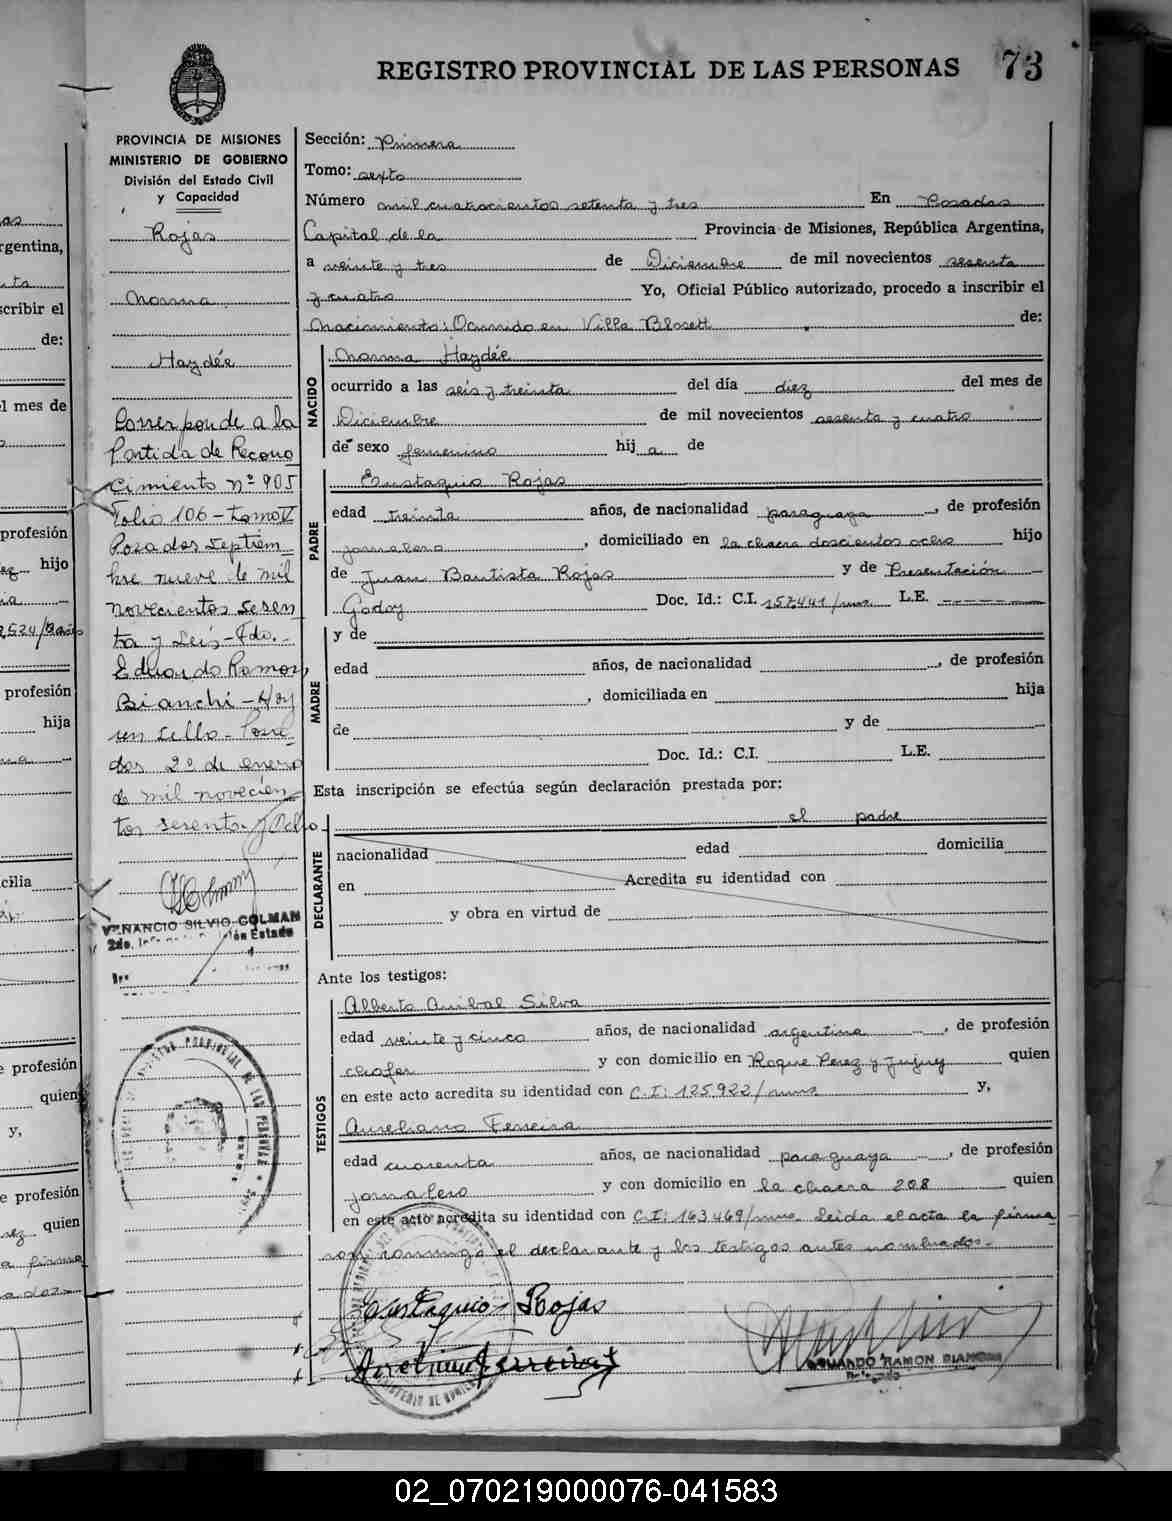 REGISTRO PROVINCIAL DE LAS PERSONAS 73
PROVINCIA DE MISIONES
MINISTERIO DE GOBIERNO
División del Estado Civil
y Capacidad
Rojas
Norma
Haydée
Corresponde a la
Partida de Recono
cimiento nº 905
Folio 106 - tomo V
Posadas Septiem
bre nueve de mil
novecientos sesen
ta y seis - Fdo. -
Eduardo Ramon
Bianchi - Hay
un sello - Posa
das 2º de enero
de mil novecien
tos sesenta y Ocho -
VENANCIO SILVIO GOLMAN
2do.
Sección: Primera
Tomo: sexto
Número mil cuatrocientos setenta y tres En Posadas
Capital de la Provincia de Misiones, República Argentina,
a veinte y tres de Diciembre de mil novecientos sesenta
y cuatro Yo, Oficial Público autorizado, procedo a inscribir el
Nacimiento: Ocurrido en Villa Blosett de:
NACIDO
Norma Haydée
ocurrido a las seis y treinta del día diez del mes de
Diciembre de mil novecientos sesenta y cuatro
de sexo femenino hij a de
PADRE
Eustaquio Rojas
edad treinta años, de nacionalidad paraguaya, de profesión
jornalero, domiciliado en la chacra doscientos ocho hijo
de Juan Bautista Rojas y de Presentación
Godoy Doc. Id.: C.I. 157.441/mnes L.E. -------
MADRE
y de
edad años, de nacionalidad, de profesión
, domiciliada en hija
de y de
Doc. Id.: C.I. L.E.
Esta inscripción se efectúa según declaración prestada por:
DECLARANTE
el padre
nacionalidad edad domicilia
en Acredita su identidad con
y obra en virtud de
Ante los testigos:
TESTIGOS
Alberto Anibal Silva
edad veinte y cinco años, de nacionalidad argentina, de profesión
chofer y con domicilio en Roque Perez y Jujuy quien
en este acto acredita su identidad con C.I: 125.922/mns y,
Aureliano Ferreira
edad cuarenta años, de nacionalidad paraguaya, de profesión
jornalero y con domicilio en la chacra 208 quien
en este acto acredita su identidad con C.I: 163.469/mns. Leida el acta la firma
conmigo el declarante y los testigos antes nombrados.-
Eustaquio Rojas
Aureliano Ferreira
EDUARDO RAMON BIANCHI
Delegado
02_070219000076-041583